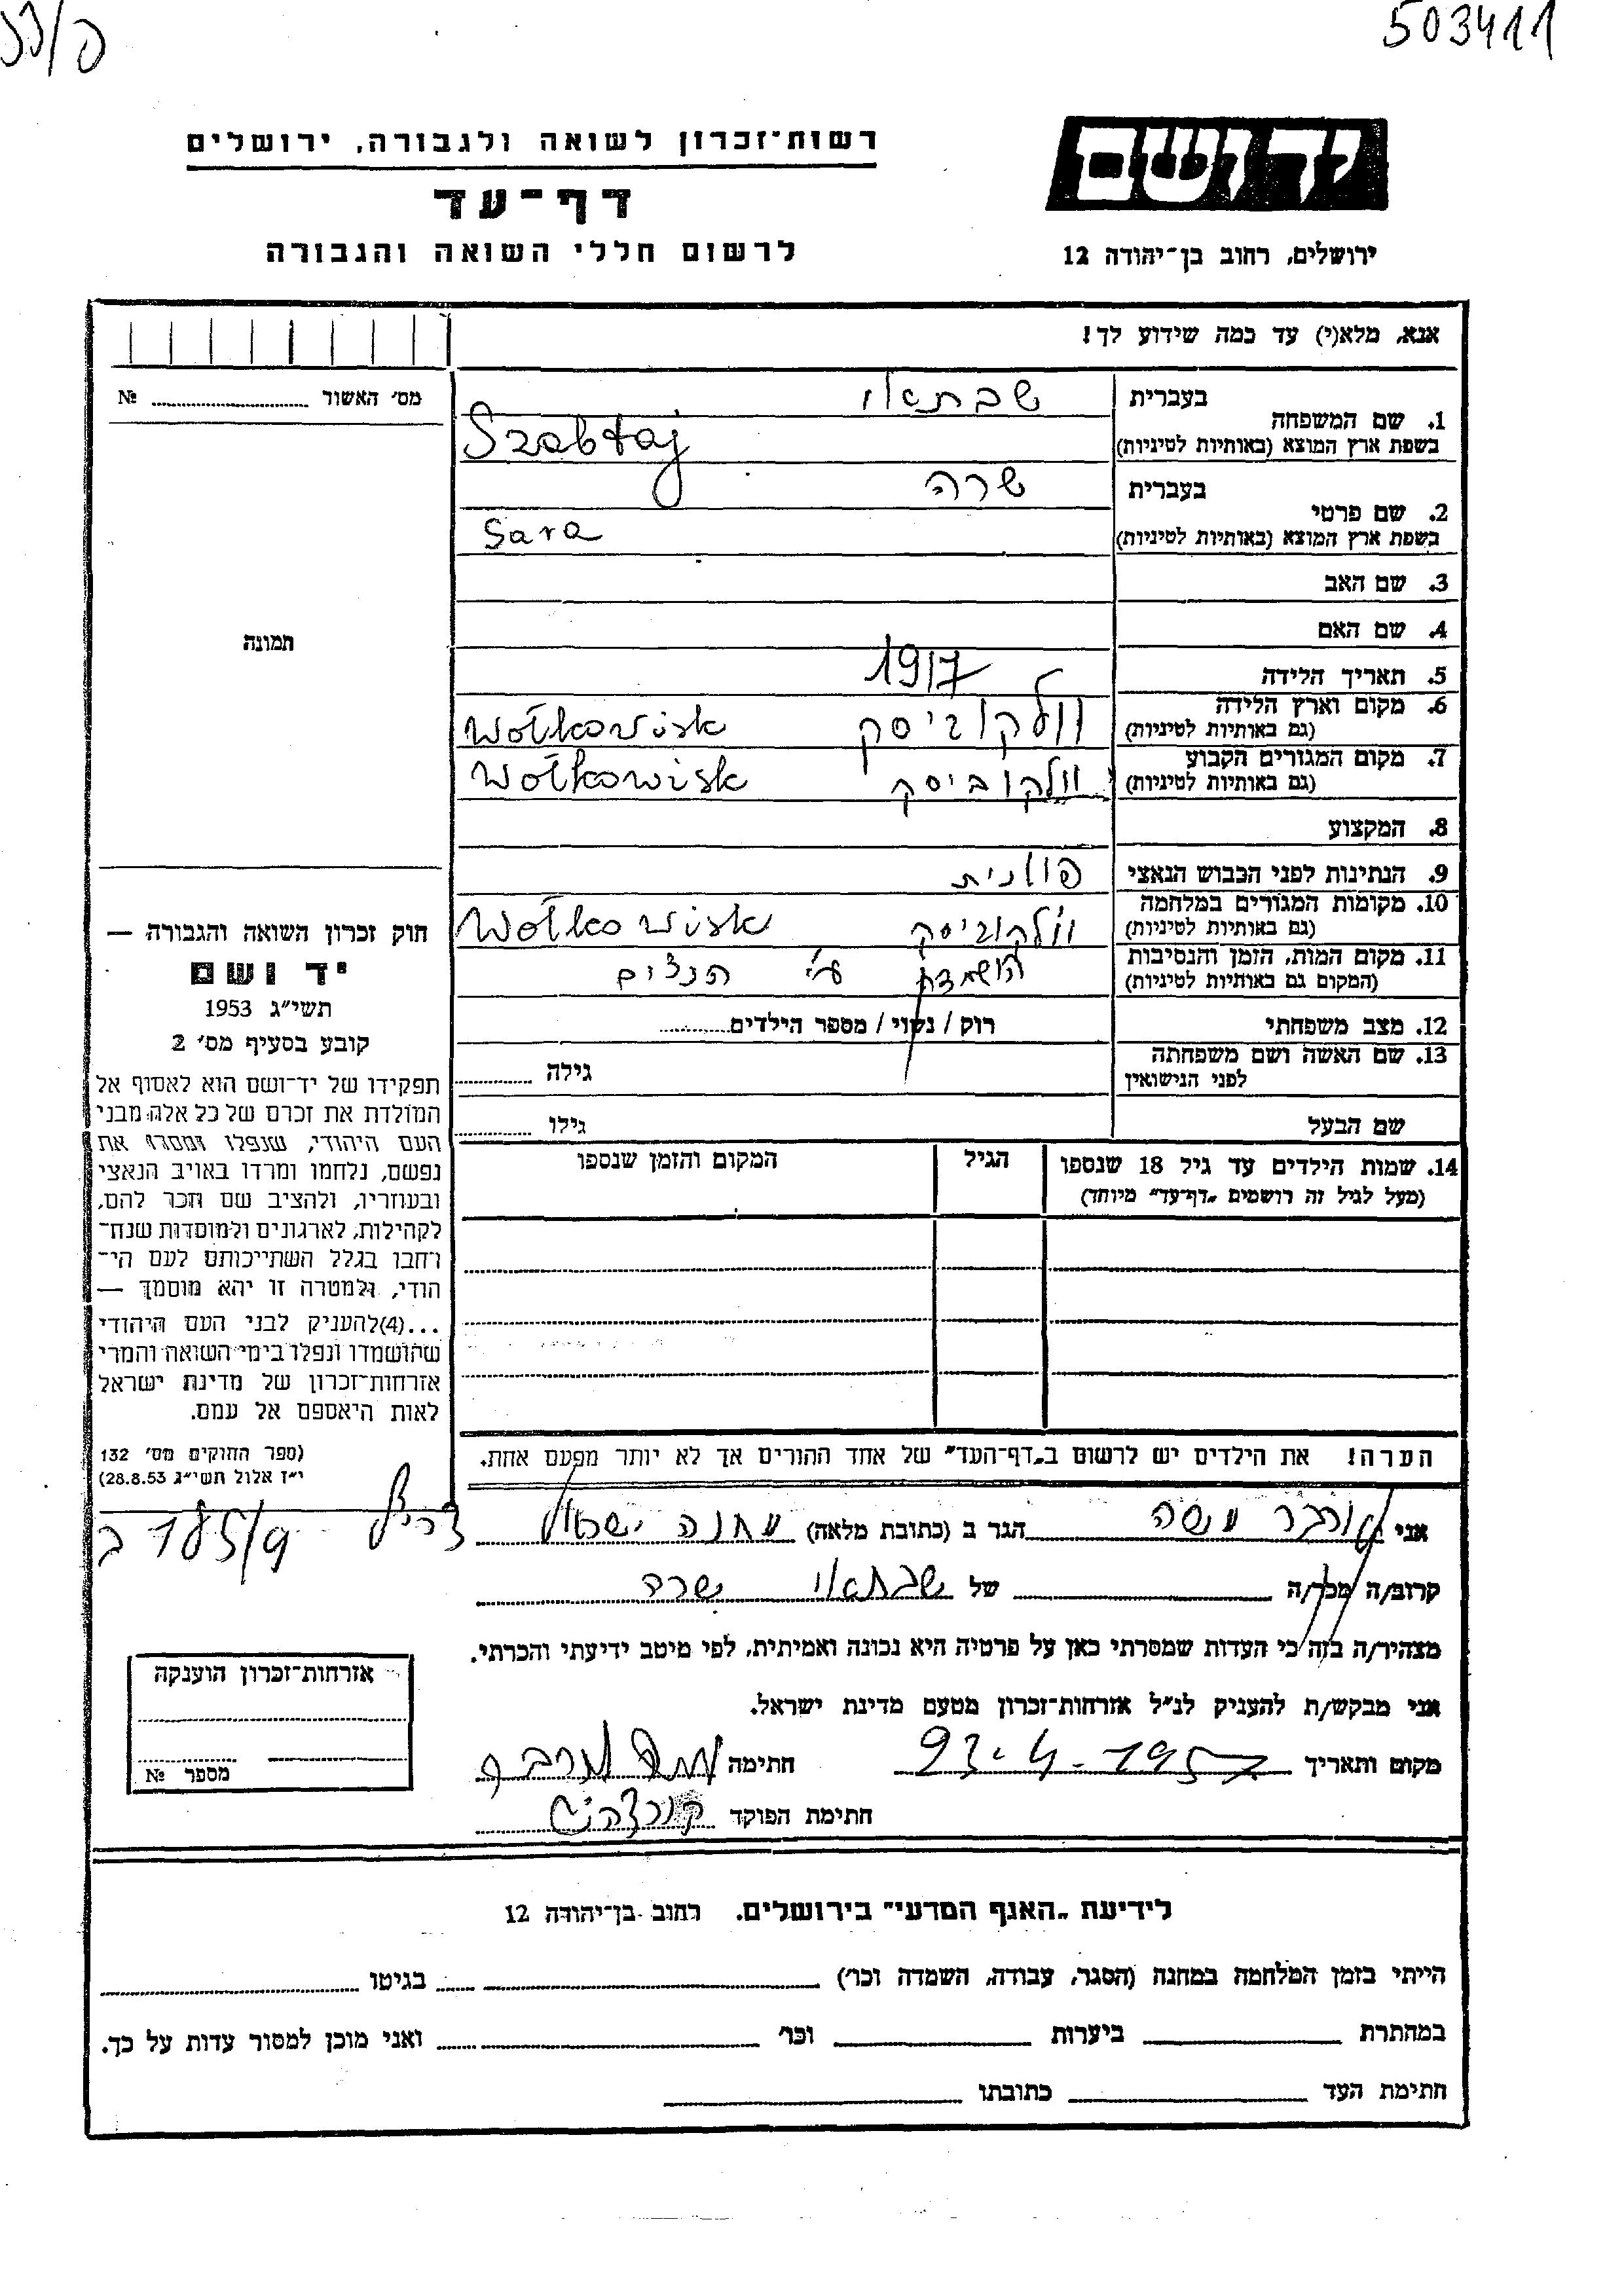 503411
יד ושם
ירושלים, רחוב בן־יהודה 12
רשות־זכרון לשואה ולגבורה, ירושלים
דף־עד
לרשום חללי השואה והגבורה
אנא, מלא(י) עד כמה שידוע לך!
מס׳ האשור № 
1. שם המשפחה בעברית שבתאי
בשפת ארץ המוצא (באותיות לטיניות) Szabtaj
2. שם פרטי בעברית שרה
בשפת ארץ המוצא (באותיות לטיניות) Sara
3. שם האב
4. שם האם
5. תאריך הלידה 1917
6. מקום וארץ הלידה (גם באותיות לטיניות) וולקוביסק Wołkowisk
7. מקום המגורים הקבוע (גם באותיות לטיניות) וולקוביסק Wołkowisk
8. המקצוע
9. הנתינות לפני הכבוש הנאצי פולנית
10. מקומות המגורים במלחמה (גם באותיות לטיניות) וולקוביסק Wołkowisk
11. מקום המות, הזמן והנסיבות (המקום גם באותיות לטיניות) הושמדת ע״י הנצים
12. מצב משפחתי רוק / נשוי / מספר הילדים
13. שם האשה ושם משפחתה לפני הנישואין גילה
שם הבעל גילו
14. שמות הילדים עד גיל 18 שנספו הגיל המקום והזמן שנספו
(מעל לגיל זה רושמים „דף־עד״ מיוחד)
הערה! את הילדים יש לרשום ב„דף־העד״ של אחד ההורים אך לא יותר מפעם אחת.
תמונה
חוק זכרון השואה והגבורה —
יד ושם
תשי״ג 1953
קובע בסעיף מס׳ 2
תפקידו של יד־ושם הוא לאסוף אל
המולדת את זכרם של כל אלה מבני
העם היהודי, שנפלו ומסרו את
נפשם, נלחמו ומרדו באויב הנאצי
ובעוזריו, ולהציב שם וזכר להם,
לקהילות, לארגונים ולמוסדות שנח־
רחבו בגלל השתייכותם לעם הי־
הודי, ולמטרה זו יהא מוסמך —
...(4) להעניק לבני העם היהודי
שהושמדו ונפלו בימי השואה והמרי
אזרחות־זכרון של מדינת ישראל
לאות היאספם אל עמם.
(ספר החוקים מס׳ 132
י״ז אלול תשי״ג 28.8.53)
אני הגר ב (כתובת מלאה) מחנה ישראל צריף
קרוב/ה מכר/ה של שבתאי שרה
מצהיר/ה בזה כי העדות שמסרתי כאן על פרטיה היא נכונה ואמיתית, לפי מיטב ידיעתי והכרתי.
אני מבקש/ת להעניק לנ״ל אזרחות־זכרון מטעם מדינת ישראל.
מקום ותאריך 23.4.1957 חתימה
חתימת הפוקד
אזרחות־זכרון הוענקה
מספר №
לידיעת „האגף המדעי״ בירושלים. רחוב בן־יהודה 12
הייתי בזמן המלחמה במחנה (הסגר, עבודה, השמדה וכו׳) בגיטו
במחתרת ביערות וכו׳ ואני מוכן למסור עדות על כך.
חתימת העד כתובתו